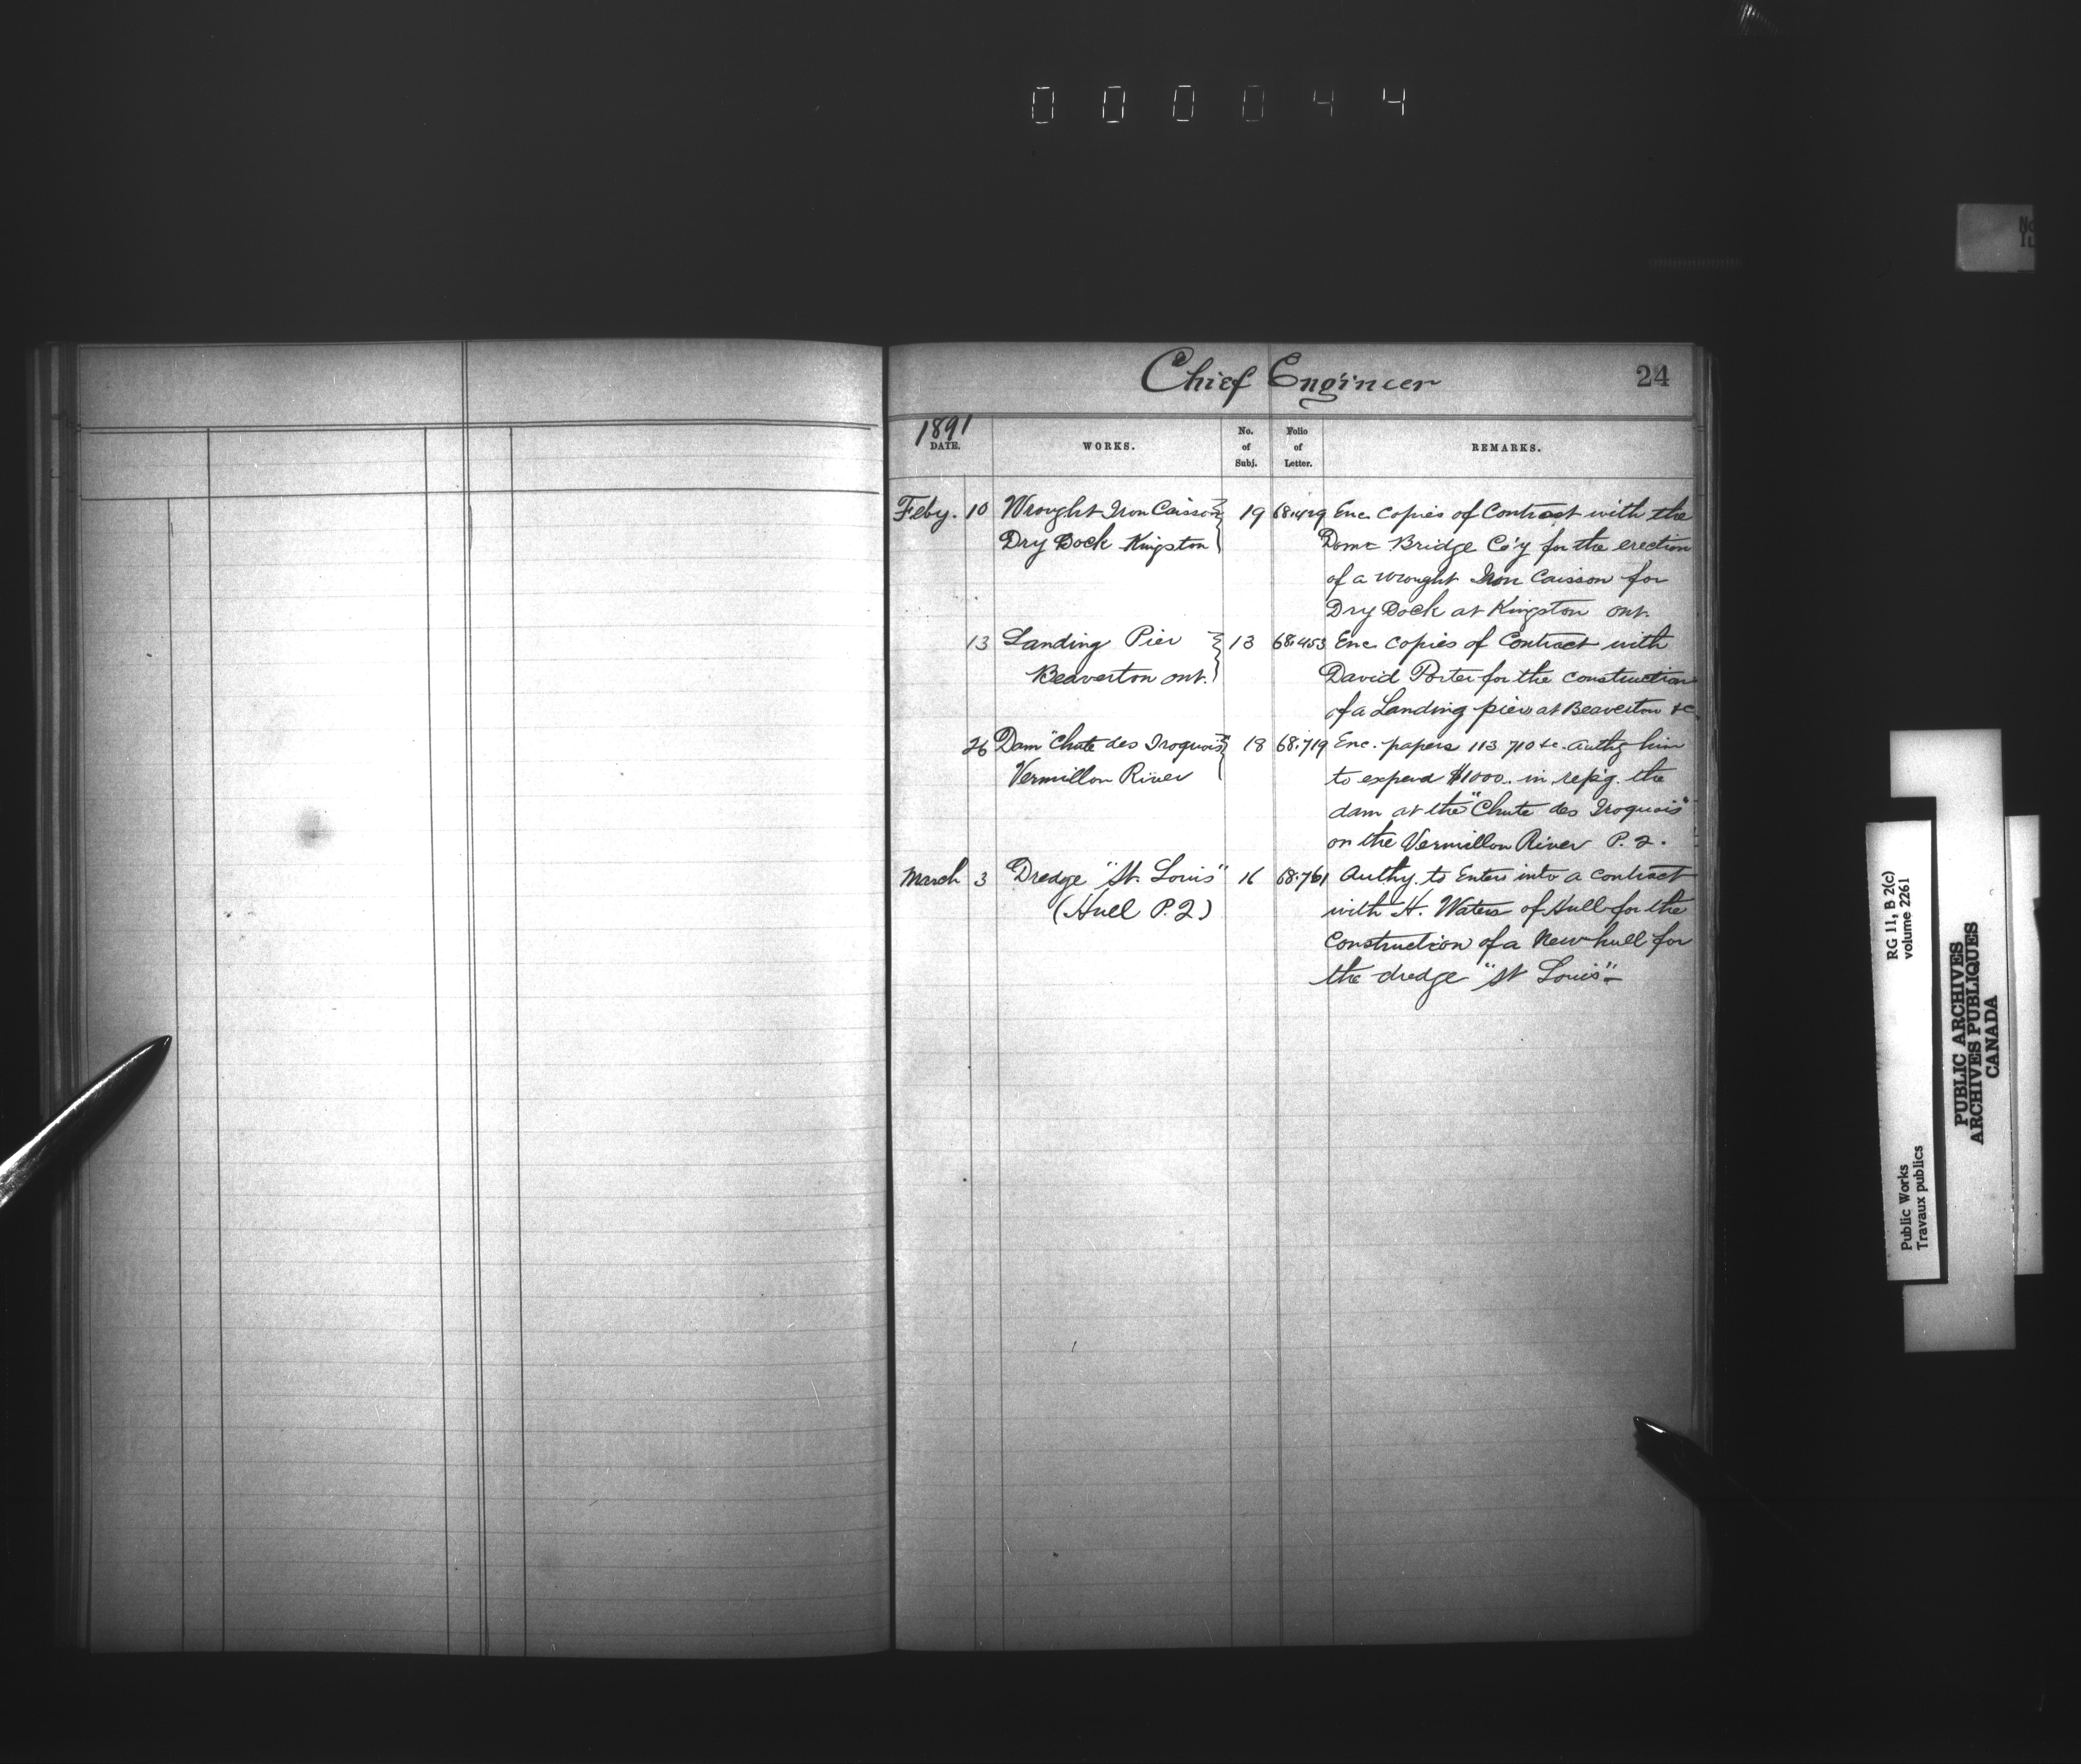 000044
Chief Engineer 24
1891
DATE. WORKS. No. of Subj. Folio of Letter. REMARKS.
Feby. 10 Wrought Iron Caisson 19 68.429 Enc. Copies of Contract with the
Dry Dock Kingston Domn Bridge Co'y for the erection
of a wrought Iron Caisson for
Dry Dock at Kingston Ont.
13 Landing Pier 13 68.453 Enc. copies of Contract with
Beaverton Ont. David Porter for the construction
of a Landing pier at Beaverton &c.
26 Dam "Chute des Iroquois" 18 68.719 Enc. papers 113 710 &c. Authg him
Vermillon River to expend $1000. in rep'g. the
dam at the "Chute des Iroquois"
on the Vermillon River P. Q.
March 3 Dredge "St. Louis" 16 68.761 Authy. to Enter into a contract
(Hull P.Q) with H. Waters of Hull for the
Construction of a New hull for
the dredge "St Louis"
RG 11, B 2(c)
volume 2261
Public Works
Travaux publics
PUBLIC ARCHIVES
ARCHIVES PUBLIQUES
CANADA